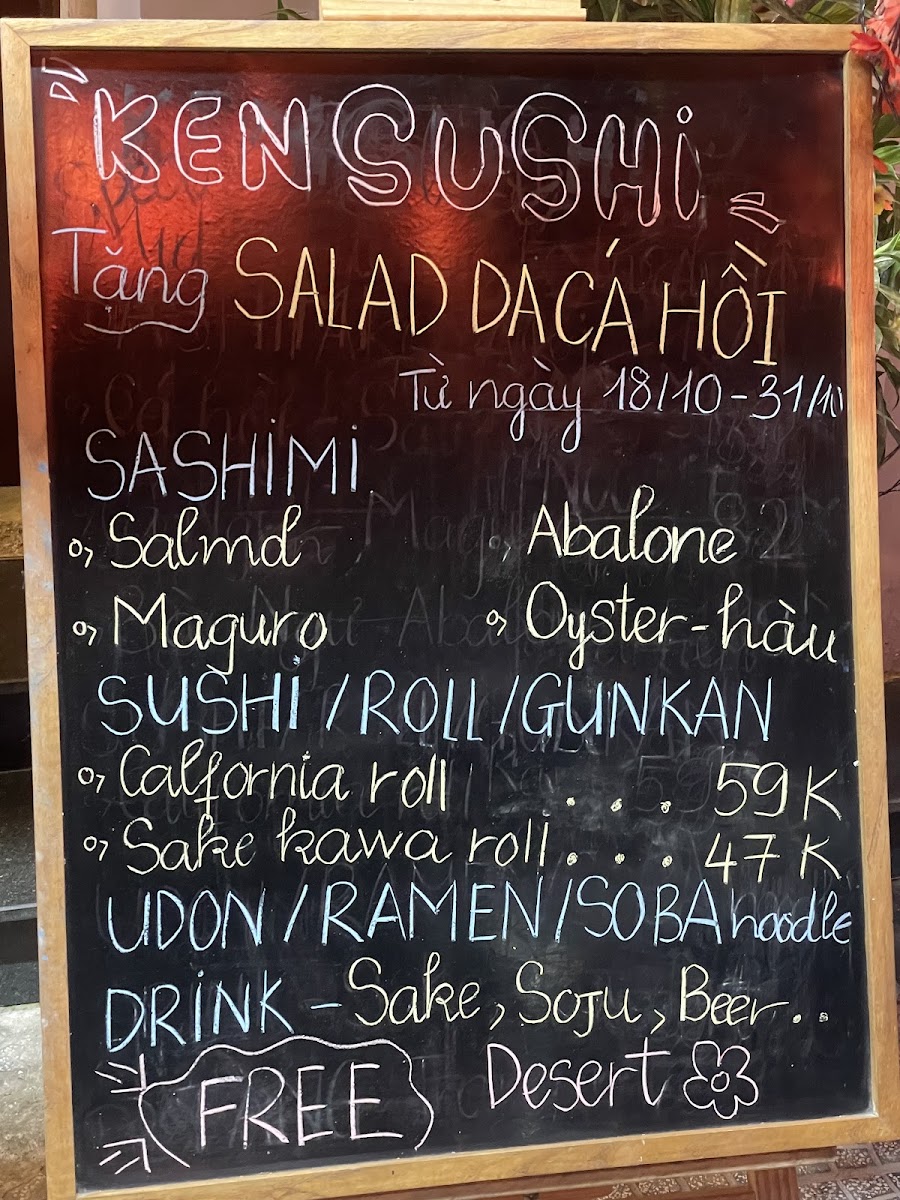 KEN SUSHi
Tặng SALAD DA CÁ HỒI
Từ ngày 18/10 - 31/10
SASHiMi
Salmd
Abalone
Maguro
Oyster - hàu
SUSHi / ROLL / GUNKAN
Calfornia roll . . . . 59 K
Sake kawa roll . . . . 47 K
UDON / RAMEN / SOBA noodle
DRiNK - Sake, Soju, Beer . .
FREE Desert